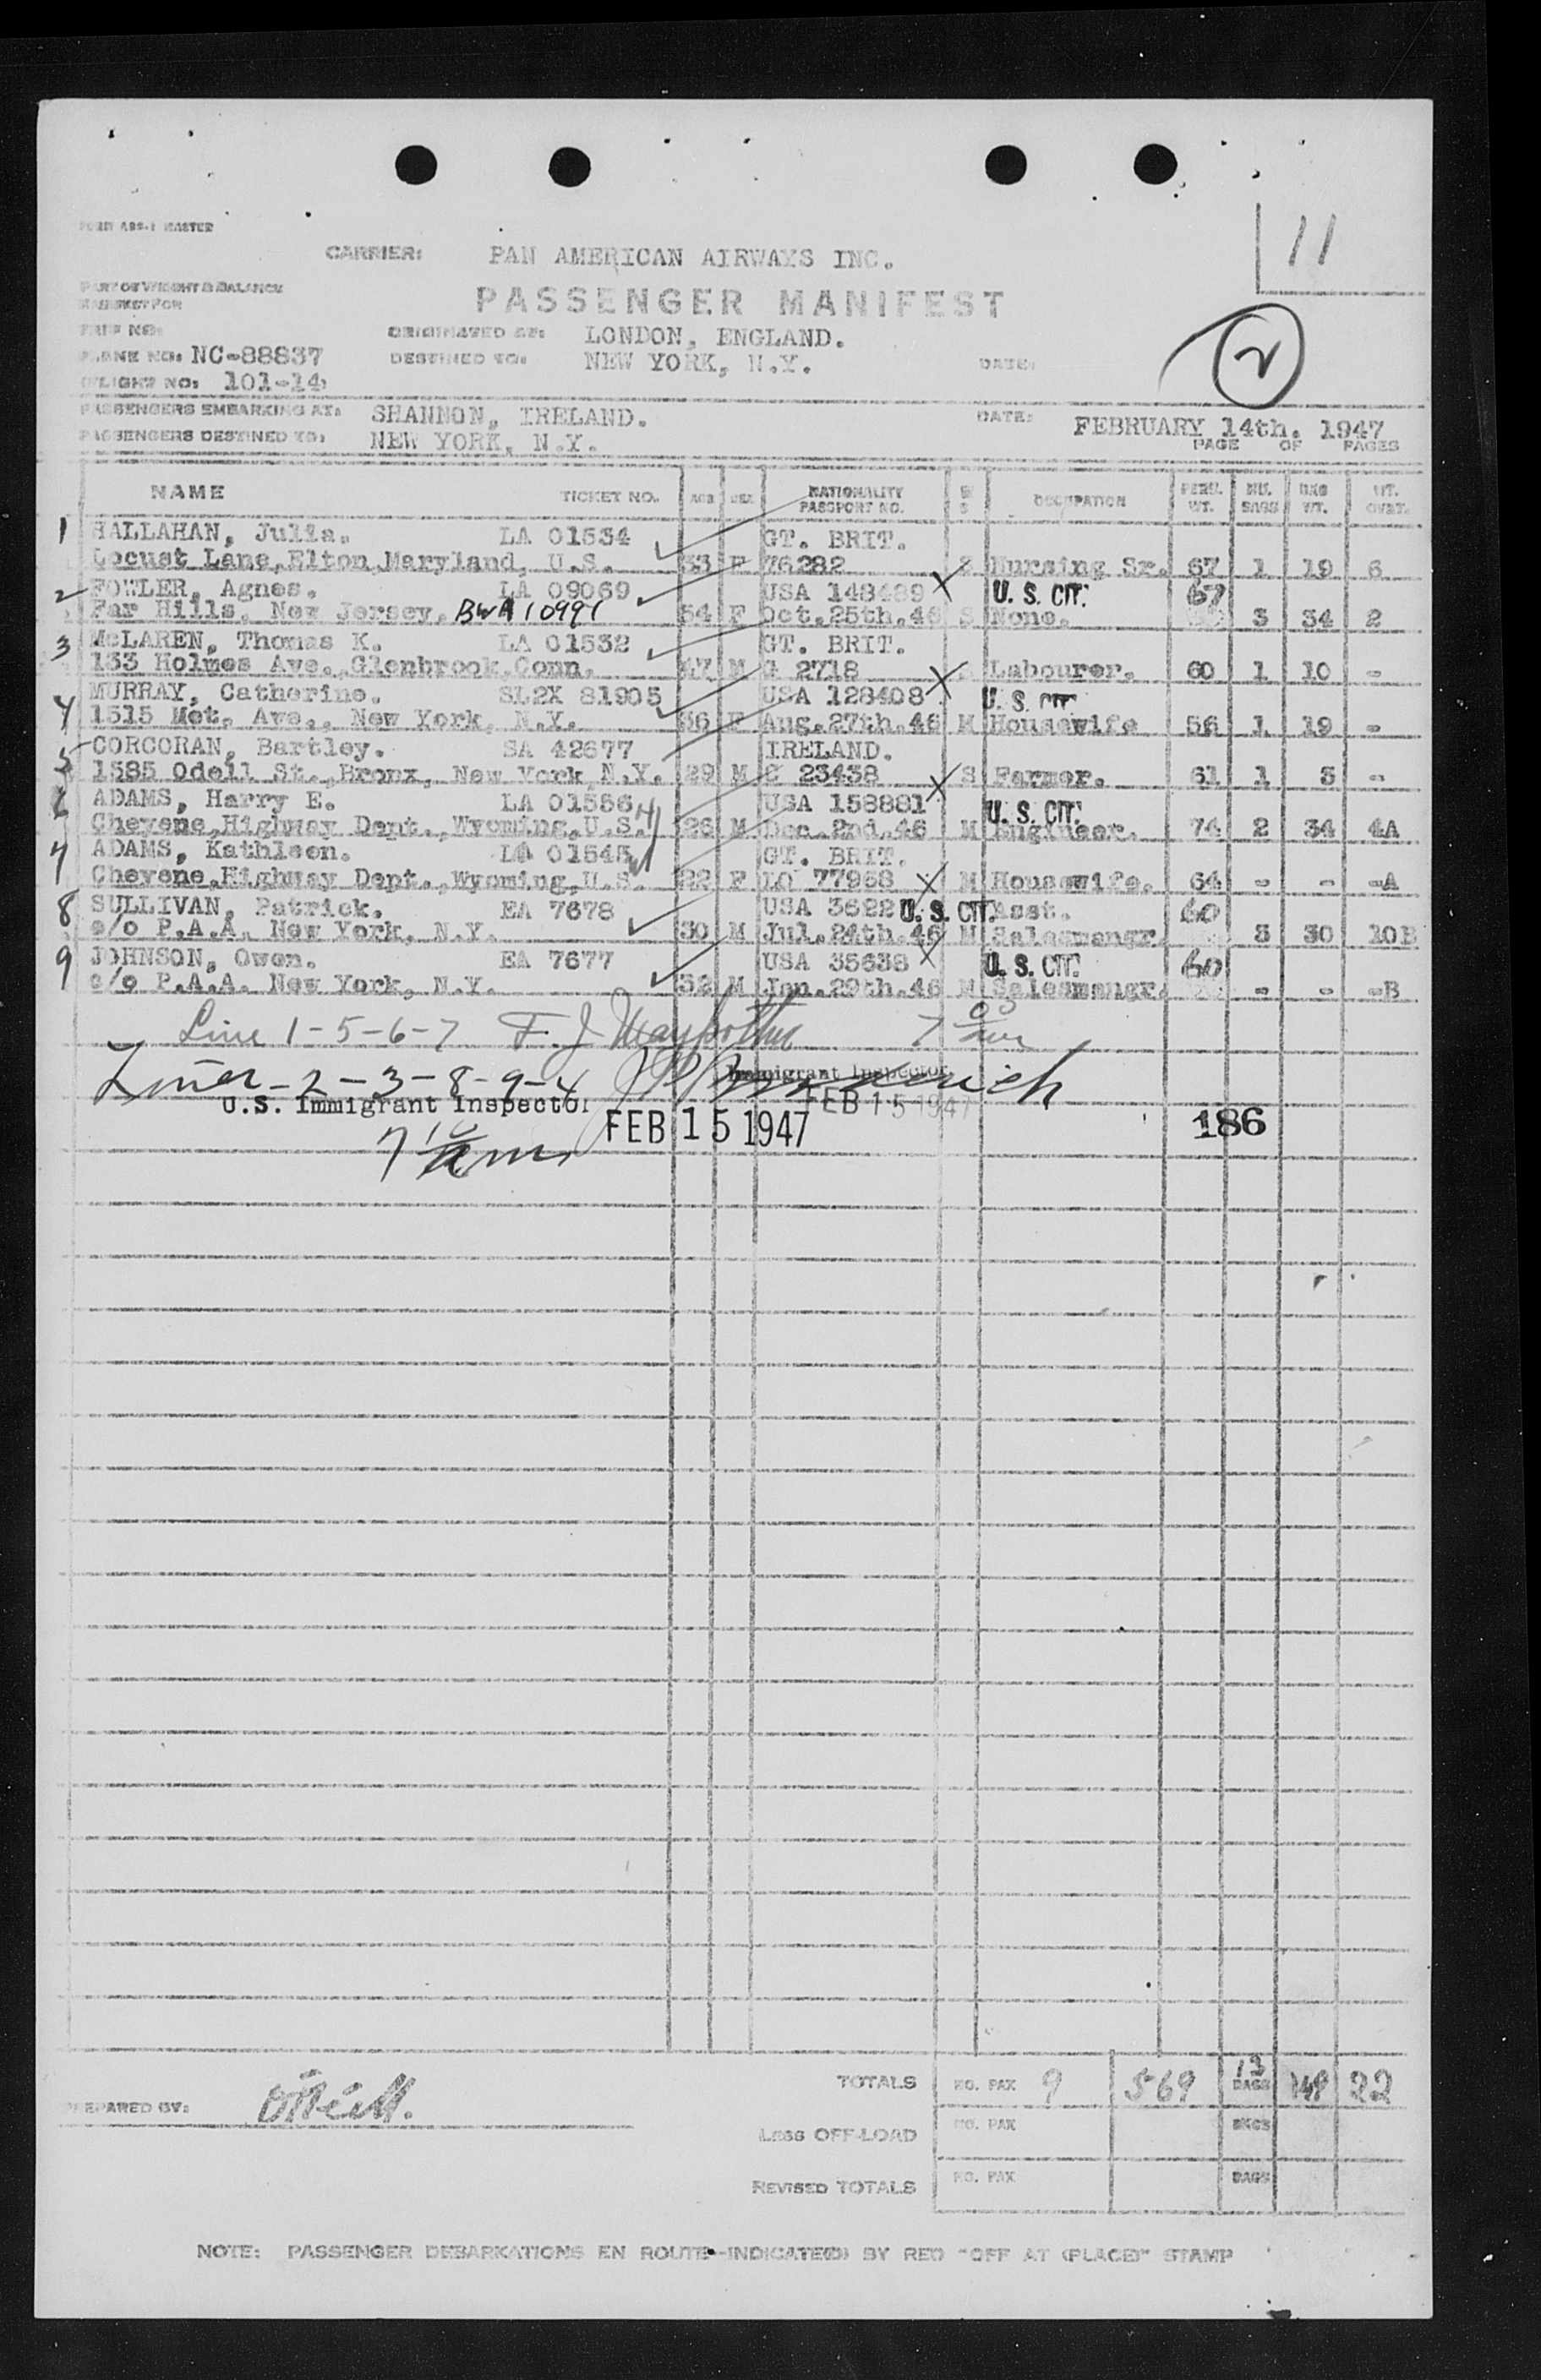 FORM ABS-1 MASTER
11
CARRIER: PAN AMERICAN AIRWAYS INC.
PART OF WEIGHT & BALANCE
MANIFEST FOR
PASSENGER MANIFEST
2
TRIP NO:
ORIGINATED AT: LONDON, ENGLAND.
PLANE NO: NC-88837
DESTINED TO: NEW YORK, N.Y.
DATE:
FLIGHT NO: 101-14
PASSENGERS EMBARKING AT: SHANNON, IRELAND.
DATE: FEBRUARY 14th. 1947
PASSENGERS DESTINED TO: NEW YORK, N.Y.
PAGE OF PAGES
NAME TICKET NO. AGE SEX NATIONALITY PASSPORT NO. OCCUPATION PERS. WT. NO. BAGS BAG WT.
1 HALLAHAN, Julia. LA 01534 GT. BRIT.
Locust Lane, Elton, Maryland, U.S. 33 F 76282 S Nursing Sr. 67 1 19 6
2 FOWLER, Agnes. LA 09069 USA 148489 X U. S. CIT. 67
Far Hills, New Jersey. BWA 10991 54 F Oct.25th.46 S None. 3 34 2
3 McLAREN, Thomas K. LA 01532 GT. BRIT.
133 Holmes Ave., Glenbrook, Conn. 47 M 2718 Labourer. 60 1 10 -
4 MURRAY, Catherine. SL2X 81905 USA 128408 X U. S. CIT
1515 Met. Ave., New York, N.Y. 36 F Aug.27th.46 M Housewife 56 1 19 -
5 CORCORAN, Bartley. SA 42677 IRELAND.
1585 Odell St., Bronx, New York N.Y. 29 M C 23438 S Farmer. 61 1 3 -
6 ADAMS, Harry E. LA 01556 USA 158881 X U. S. CIT.
Cheyene, Highway Dept., Wyoming, U.S. 26 M Dec.2nd.46 M Engineer. 74 2 34 4A
7 ADAMS, Kathleen. LA 01545 GT. BRIT.
Cheyene, Highway Dept., Wyoming, U.S. 22 F LO 77958 X M Housewife. 64 - - -A
8 SULLIVAN, Patrick. EA 7678 USA 3622 U. S. CIT. Asst. 60
c/o P.A.A. New York, N.Y. 30 M Jul.24th.46 M Salesmangr. 3 30 10B
9 JOHNSON, Owen. EA 7677 USA 35638 X U. S. CIT. 60
c/o P.A.A. New York, N.Y. 32 M Jan.29th.46 M Salesmangr. - - -B
Line 1-5-6-7 F. J.
Immigrant Inspector
Lines-2-3-8-9-4
U.S. Immigrant Inspector
FEB 15 1947
FEB 15 1947
186
TOTALS NO. PAX 9 569 13 BAGS 149 22
PREPARED BY: O'Neill.
LESS OFF-LOAD NO. PAX BAGS
REVISED TOTALS NO. PAX BAGS
NOTE: PASSENGER DEBARKATIONS EN ROUTE-INDICATE(D) BY RED "OFF AT (PLACE)" STAMP